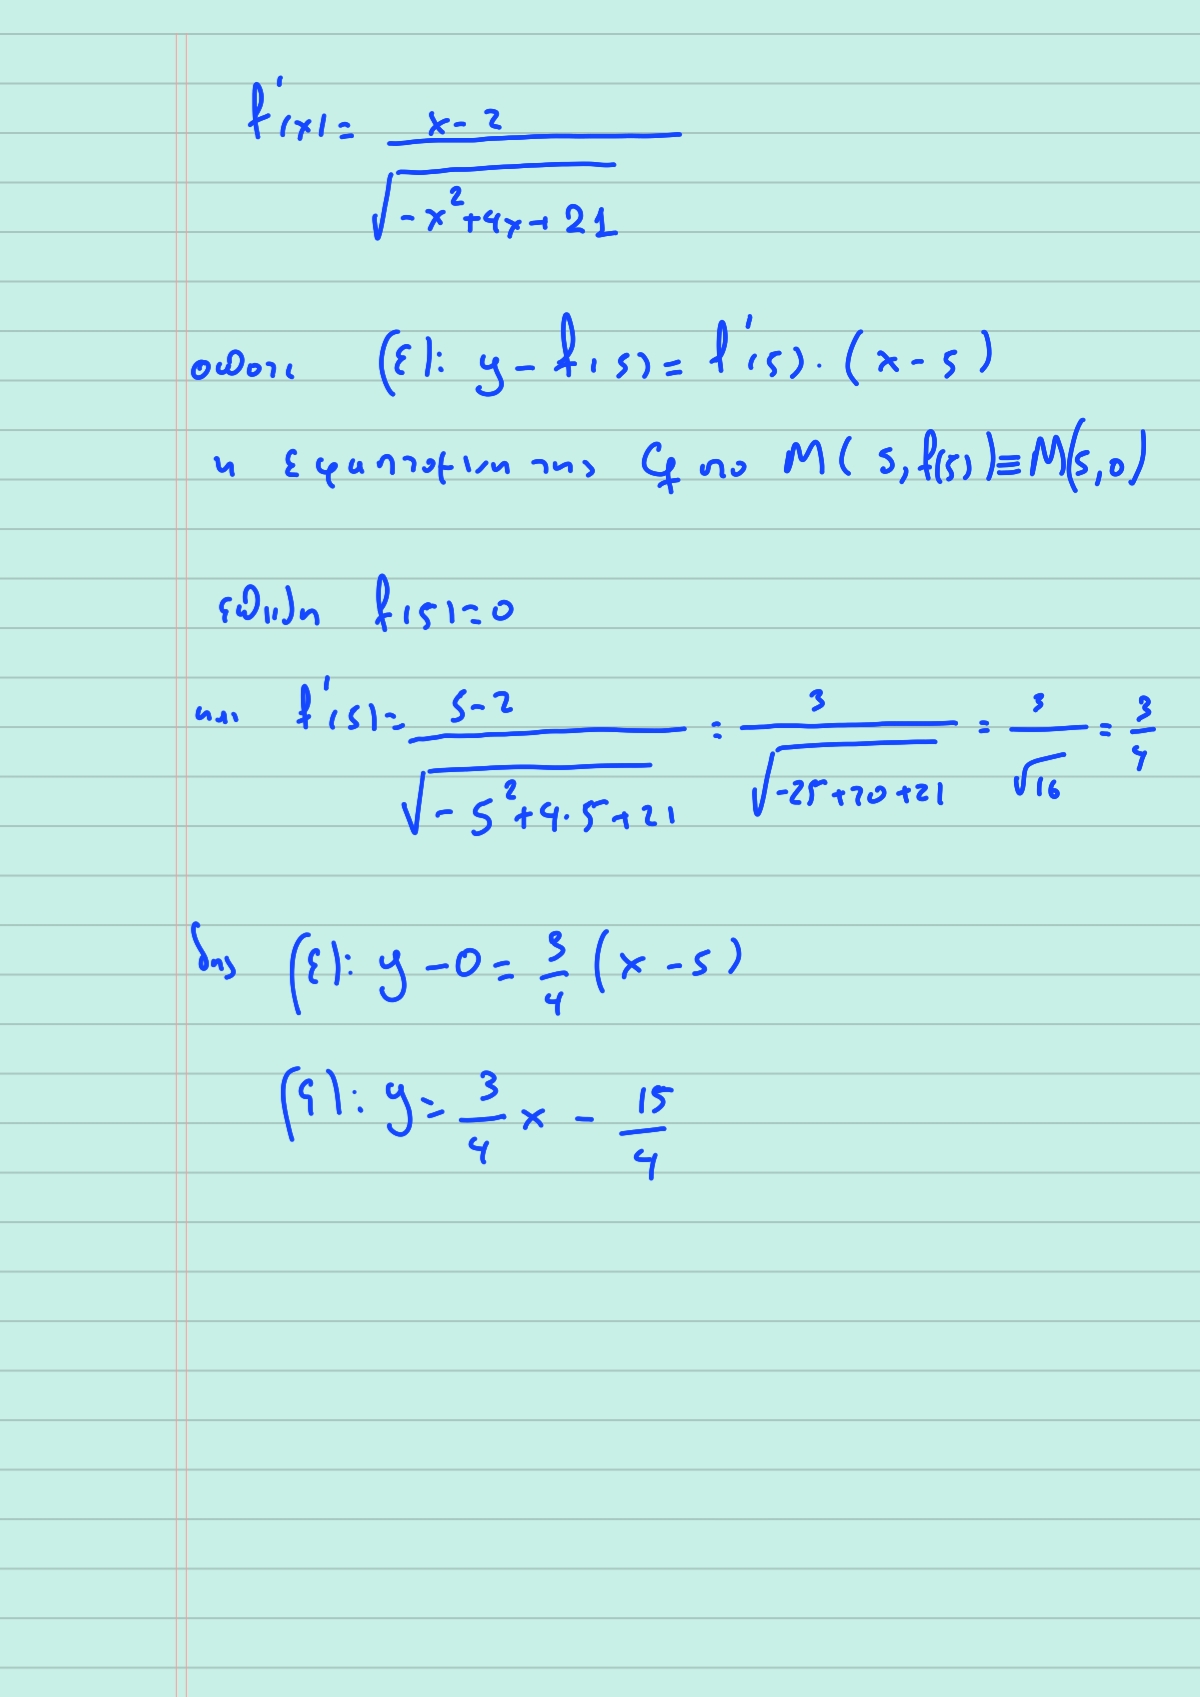 f'(x) = x-2 / √(-x²+4x+21)
οποτε (ε): y - f(5) = f'(5) · (x-5)
η εφαπτομενη της Cf στο M(5, f(5)) ≡ M(5,0)
επειδη f(5)=0
και f'(5) = 5-2 / √(-5²+4·5+21) = 3 / √(-25+20+21) = 3/√16 = 3/4
δης (ε): y-0 = 3/4 (x-5)
(ε): y = 3/4 x - 15/4